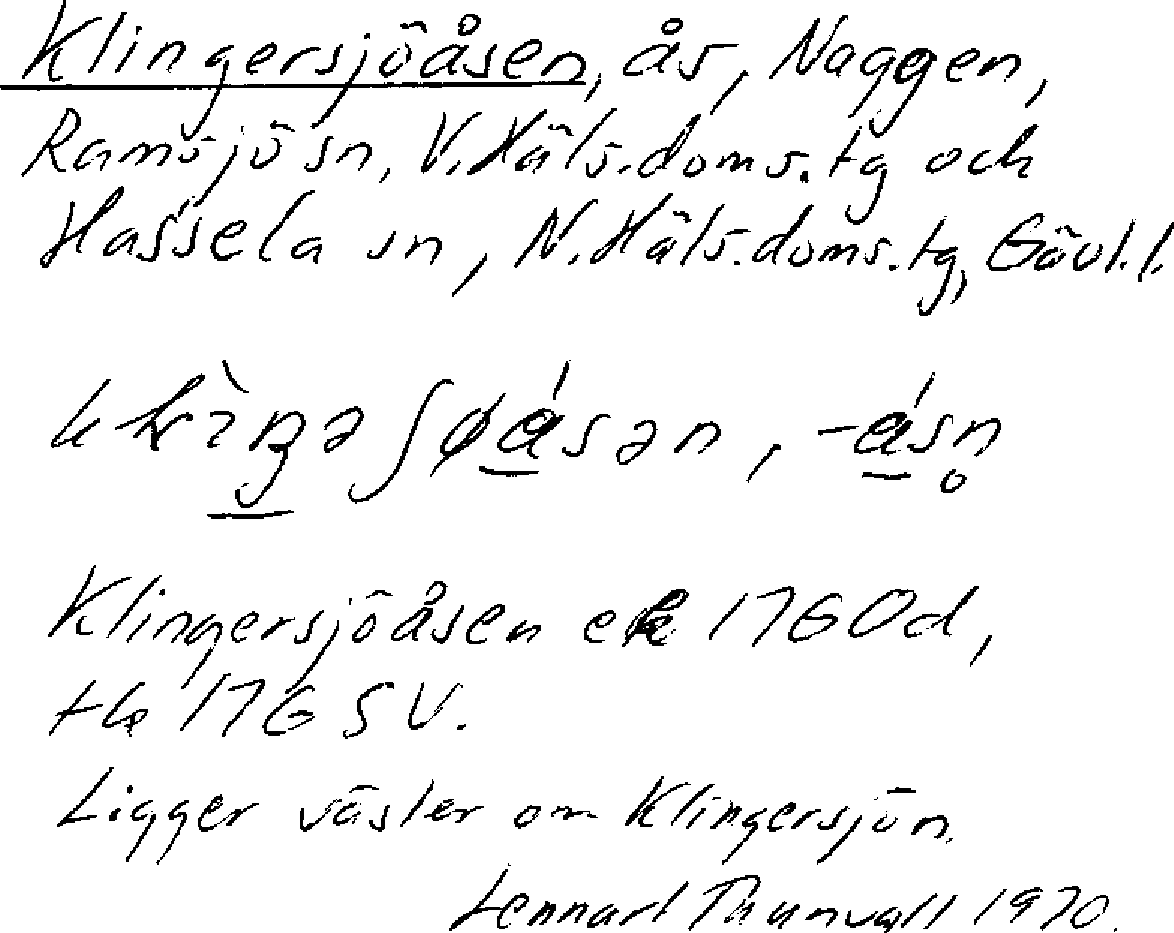 Klingersjöåsen, ås, Naggen,
Ramsjö sn, V. Häls. doms. tg och
Hassela sn, N. Häls. doms. tg, Gävl. l.
-åsn̥
Klingersjöåsen ek 176 Od,
tk 176 SV.
Ligger väster om Klingersjön.
Lennart Thunvall 1970.